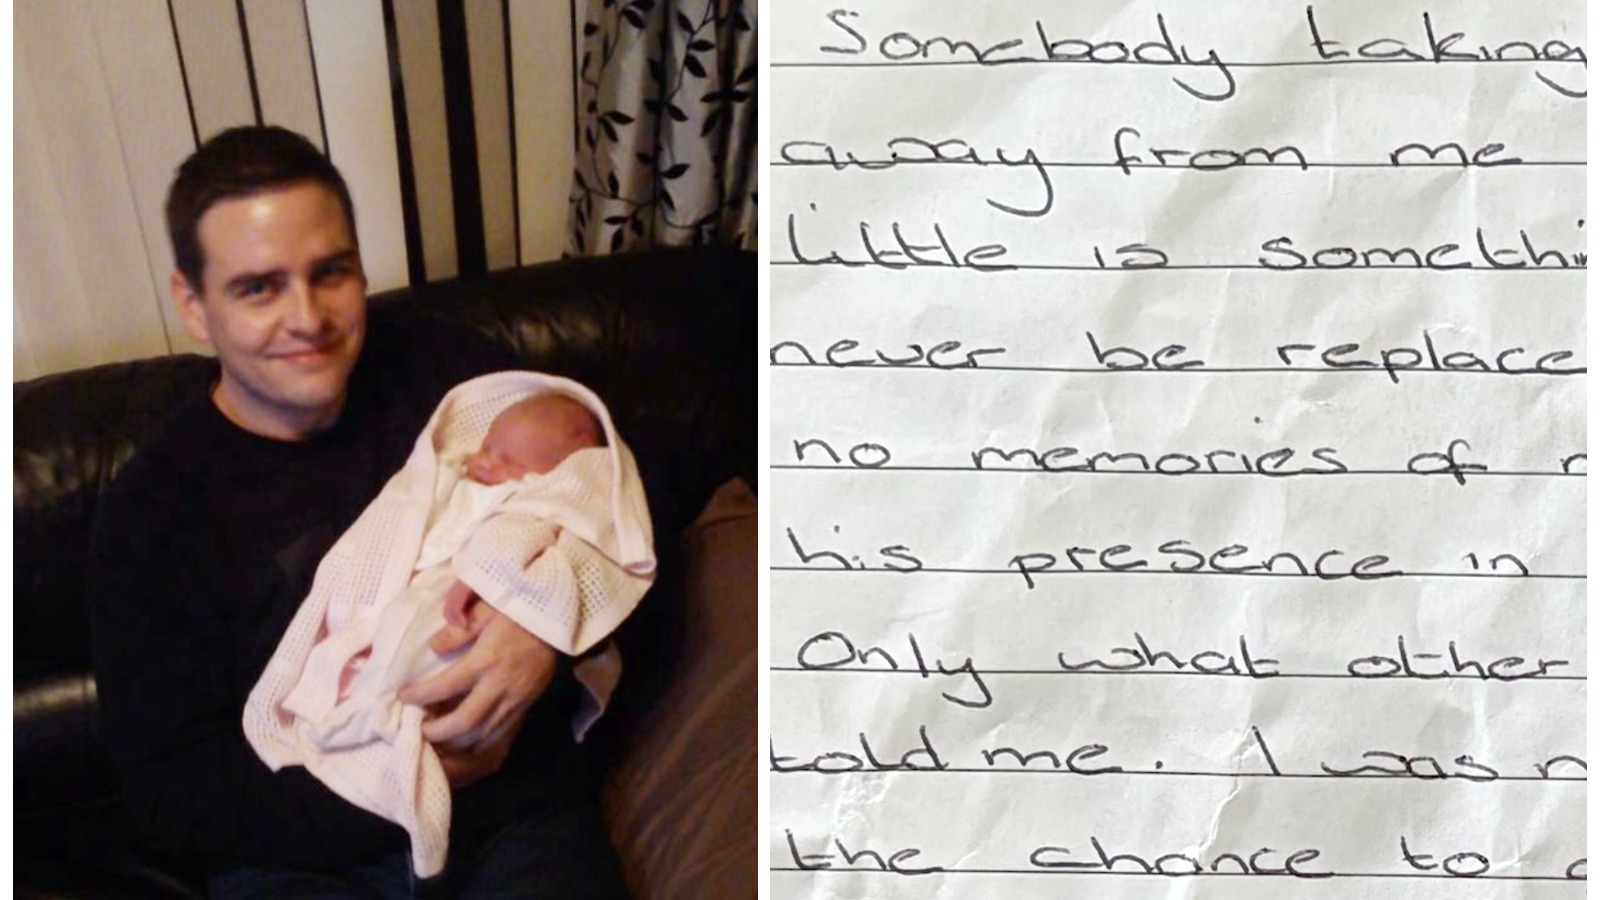 Somebody taking
away from me
little is somethi
never be replace
no memories of
his presence in
Only what other
told me. I was n
the chance to